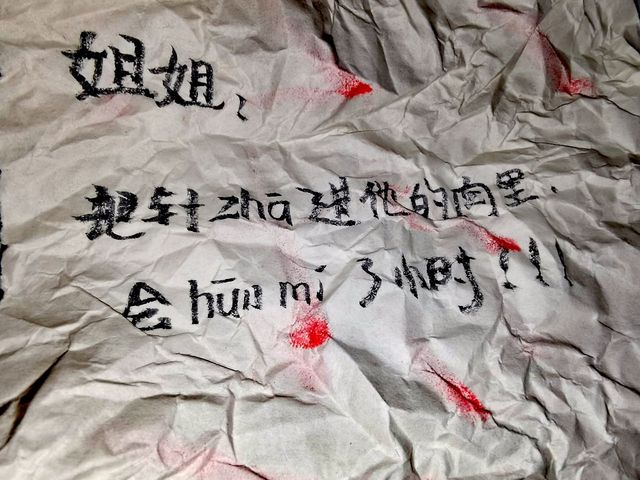 姐姐、
把针zhā进他的肉里、
会hūn mí 3小时!!!